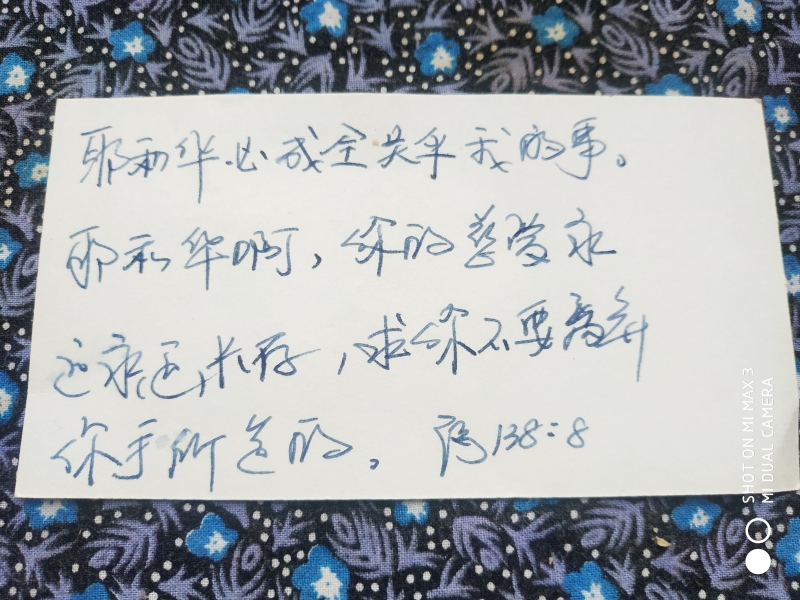 耶和华必成全关乎我的事。
耶和华啊，你的慈爱永
远永远长存，求你不要离弃
你手所造的。 诗138:8
SHOT ON MI MAX 3
MI DUAL CAMERA